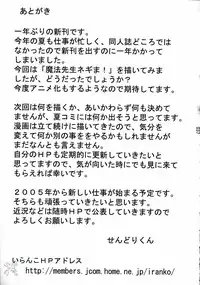 あとがき
一年ぶりの新刊です。
今年の夏も仕事が忙しく、同人誌どころでは
なかったので新刊を出すのに一年かかって
しまいました。
今回は「魔法先生ネギま!」を描いてみま
したが、どうだったでしょうか?
今度アニメ化もするようなので期待してます。
次回は何を描くか、あいかわらず何も決めて
ませんが、夏コミには何か出そうと思ってます。
漫画は立て続けに描いてきたので、気分を
変えて何か別の事をやるかもしれませんが
まだなんとも言えません。
自分のHPも定期的に更新していきたいと
思ってますので、気が向いた時にでも見に来て
もらえれば幸いです。
2005年から新しい仕事が始まる予定です。
そちらも頑張っていきたいと思います。
近況などは随時HPで公表していきますので
よろしくお願いします。
せんどりくん
いらんこHPアドレス
http://members.joom.home.ne.jp/iranko/